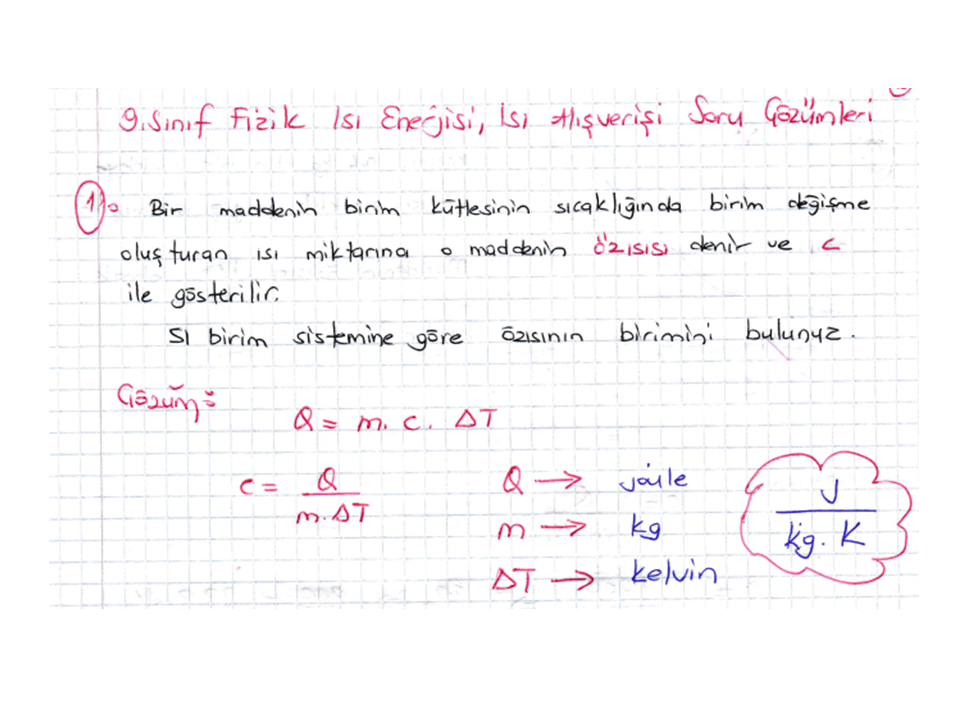 9.Sınıf Fizik Isı Enerjisi, Isı Alışverişi Soru Çözümleri
1) Bir maddenin birim kütlesinin sıcaklığında birim değişme
oluşturan ısı miktarına o maddenin özısısı denir ve c
ile gösterilir.
SI birim sistemine göre özısının birimini bulunuz.
Çözüm:
Q = m. c. ΔT
c = Q / m.ΔT
Q → joule
m → kg
ΔT → kelvin
J / kg. K